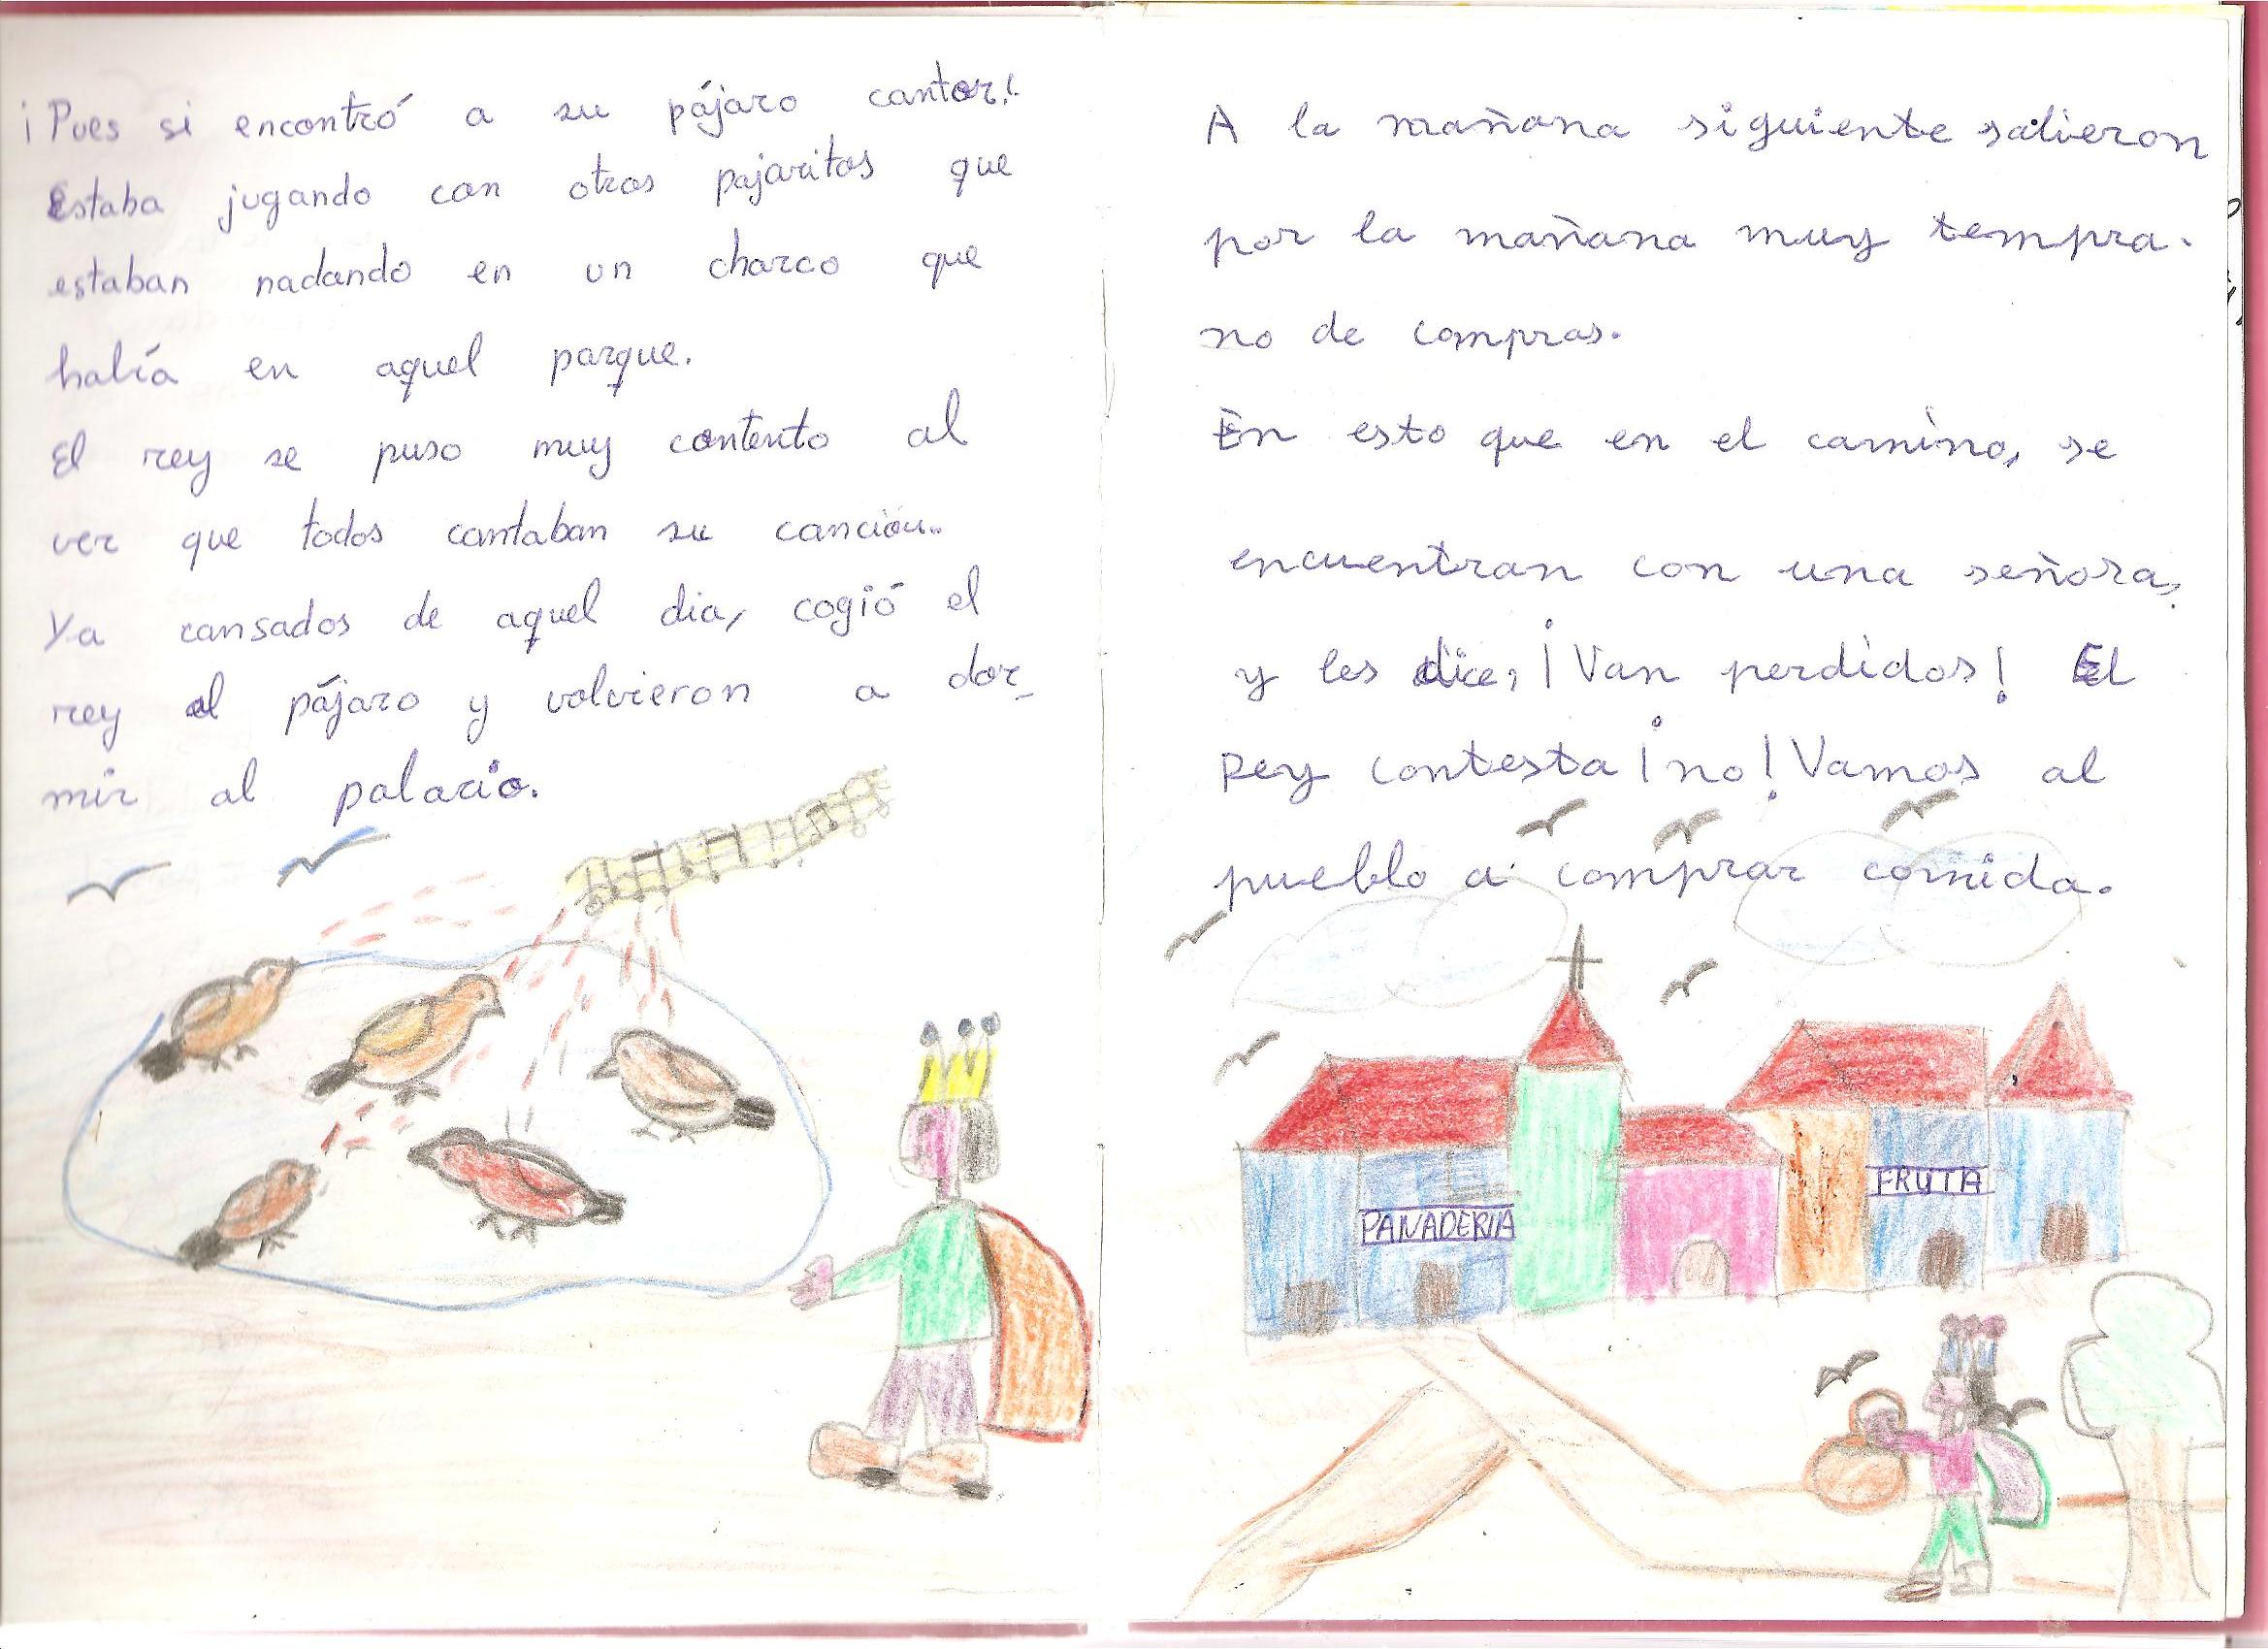 ¡Pues si encontró a su pájaro cantor!
Estaba jugando con otros pajaritos que
estaban nadando en un charco que
había en aquel parque.
El rey se puso muy contento al
ver que todos cantaban su canción..
Ya cansados de aquel dia, cogió el
rey al pájaro y volvieron a dor-
mir al palacio.
A la mañana siguiente salieron
por la mañana muy tempra-
no de compras.
En esto que en el camino, se
encuentran con una señora,
y les dice, ¡Van perdidos! El
Rey contesta ¡no! Vamos al
pueblo a comprar comida.
PANADERIA
FRUTA